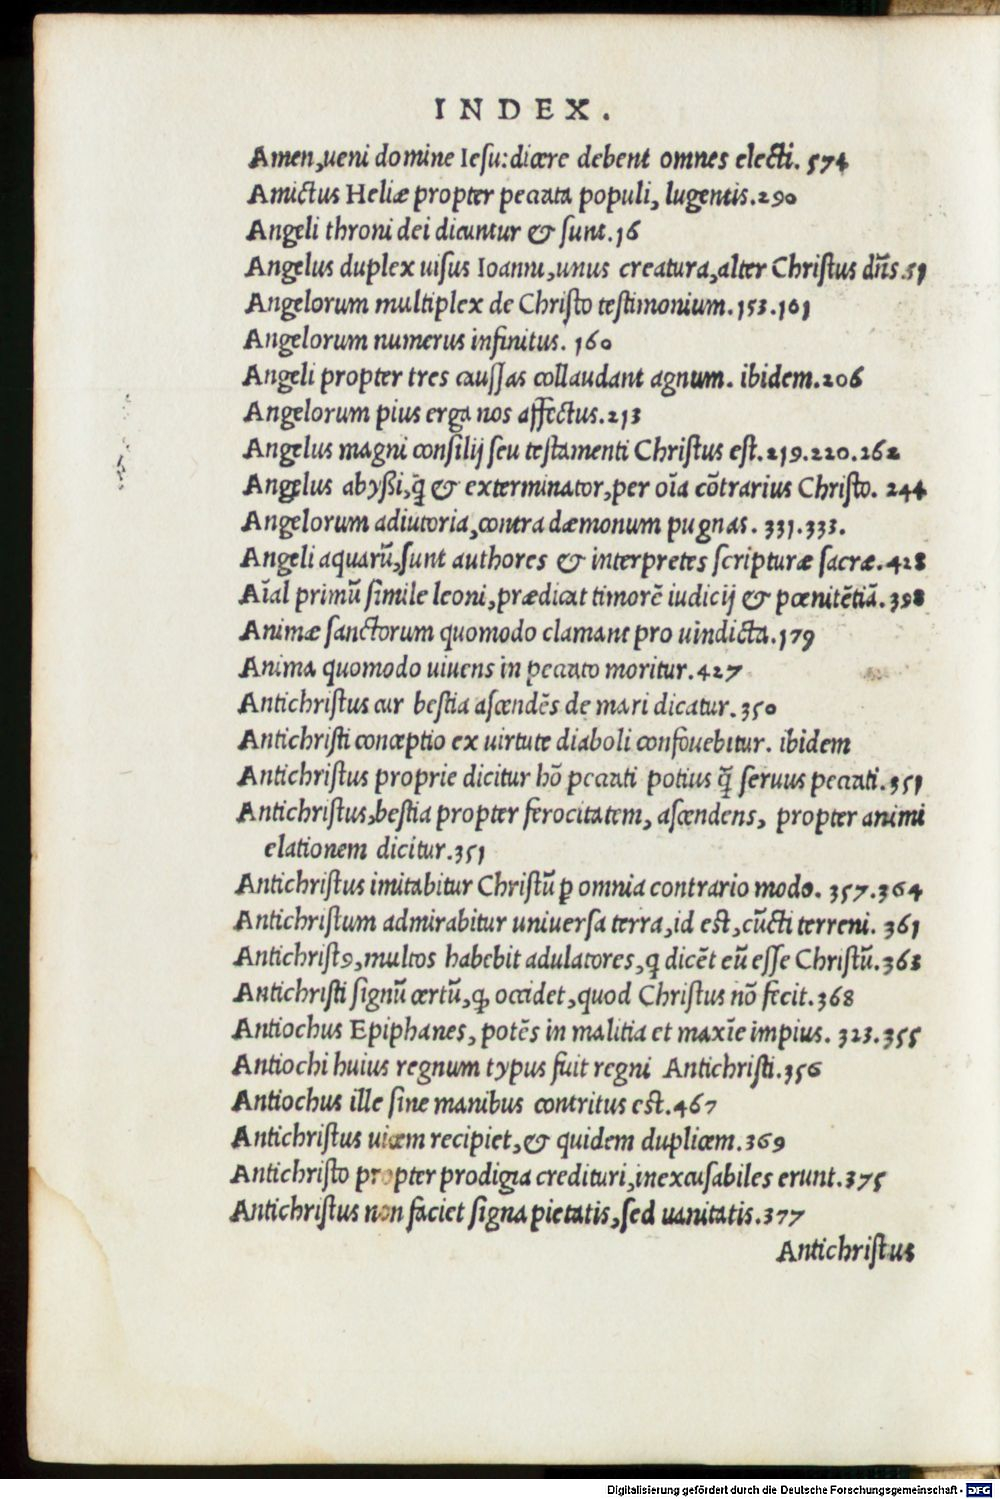 INDEX.
Amen,ueni domine Iesu:dicere debent omnes electi. 574
Amictus Heliæ propter peccata populi, lugentis.290
Angeli throni dei dicuntur & sunt.16
Angelus duplex uisus Ioanni,unus creatura,alter Christus dñs.51
Angelorum multiplex de Christo testimonium.153.161
Angelorum numerus infinitus. 160
Angeli propter tres caussas collaudant agnum. ibidem.206
Angelorum pius erga nos affectus.213
Angelus magni consilij seu testamenti Christus est.219.220.262
Angelus abyssi,q̃ & exterminator,per oĩa cõtrarius Christo. 244
Angelorum adiutoria,contra dæmonum pugnas. 331.333.
Angeli aquarũ,sunt authores & interpretes scripturæ sacræ.428
Aĩal primũ simile leoni,prædicat timorẽ iudicij & pœnitẽtiã.398
Animæ sanctorum quomodo clamant pro uindicta.179
Anima quomodo uiuens in peccato moritur.427
Antichristus cur bestia ascendẽs de mari dicatur.350
Antichristi conceptio ex uirtute diaboli confouebitur. ibidem
Antichristus proprie dicitur hõ peccati potius q̃ seruus peccati.351
Antichristus,bestia propter ferocitatem, ascendens, propter animi
elationem dicitur.351
Antichristus imitabitur Christũ ꝑ omnia contrario modo. 357.364
Antichristum admirabitur uniuersa terra,id est,cũcti terreni. 361
Antichristꝰ,multos habebit adulatores,q dicẽt eũ esse Christũ.363
Antichristi signũ certũ,ꝙ occidet,quod Christus nõ fecit.368
Antiochus Epiphanes, potẽs in malitia et maxĩe impius. 323.355
Antiochi huius regnum typus fuit regni Antichristi.356
Antiochus ille sine manibus contritus est.467
Antichristus uicem recipiet,& quidem duplicem.369
Antichristo propter prodigia credituri,inexcusabiles erunt.375
Antichristus non faciet signa pietatis,sed uanitatis.377
Antichristus
Digitalisierung gefördert durch die Deutsche Forschungsgemeinschaft - DFG